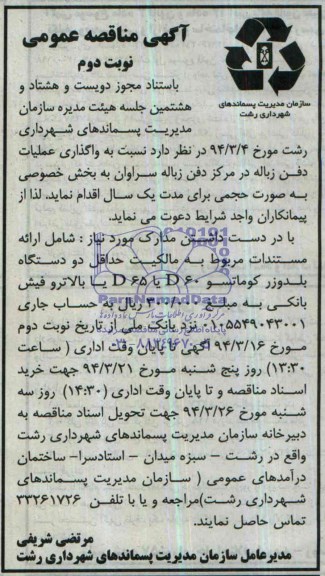 آگهی مناقصه عمومی
نوبت دوم
سازمان مدیریت پسماندهای
شهرداری رشت
باستناد مجوز دویست و هشتاد و
هشتمین جلسه هیئت مدیره سازمان
مدیریت پسماندهای شهرداری
رشت مورخ ۹۴/۳/۴ در نظر دارد نسبت به واگذاری عملیات
دفن زباله در مرکز دفن زباله سراوان به بخش خصوصی
به صورت حجمی برای مدت یک سال اقدام نماید، لذا از
پیمانکاران واجد شرایط دعوت می نماید.
با در دست داشتن مدارک مورد نیاز : شامل ارائه
مستندات مربوط به مالکیت حداقل دو دستگاه
بلدوزر کوماتسو D ۶۰ یا D ۶۵ یا بالاتر و فیش
بانکی به مبلغ ریال به حساب جاری
نزد بانک ملی از تاریخ نوبت دوم
مورخ ۹۴/۳/۱۶ آگهی تا پایان وقت اداری ( ساعت
۱۳:۳۰) روز پنج شنبه مورخ ۹۴/۳/۲۱ جهت خرید
اسناد مناقصه و تا پایان وقت اداری (۱۴:۳۰) روز سه
شنبه مورخ ۹۴/۳/۲۶ جهت تحویل اسناد مناقصه به
دبیرخانه سازمان مدیریت پسماندهای شهرداری رشت
واقع در رشت – سبزه میدان – استادسرا– ساختمان
درآمدهای عمومی ( سازمان مدیریت پسماندهای
شهرداری رشت)مراجعه و یا با تلفن ۳۳۲۶۱۷۲۶
تماس حاصل نمایند.
مرتضی شریفی
مدیرعامل سازمان مدیریت پسماندهای شهرداری رشت